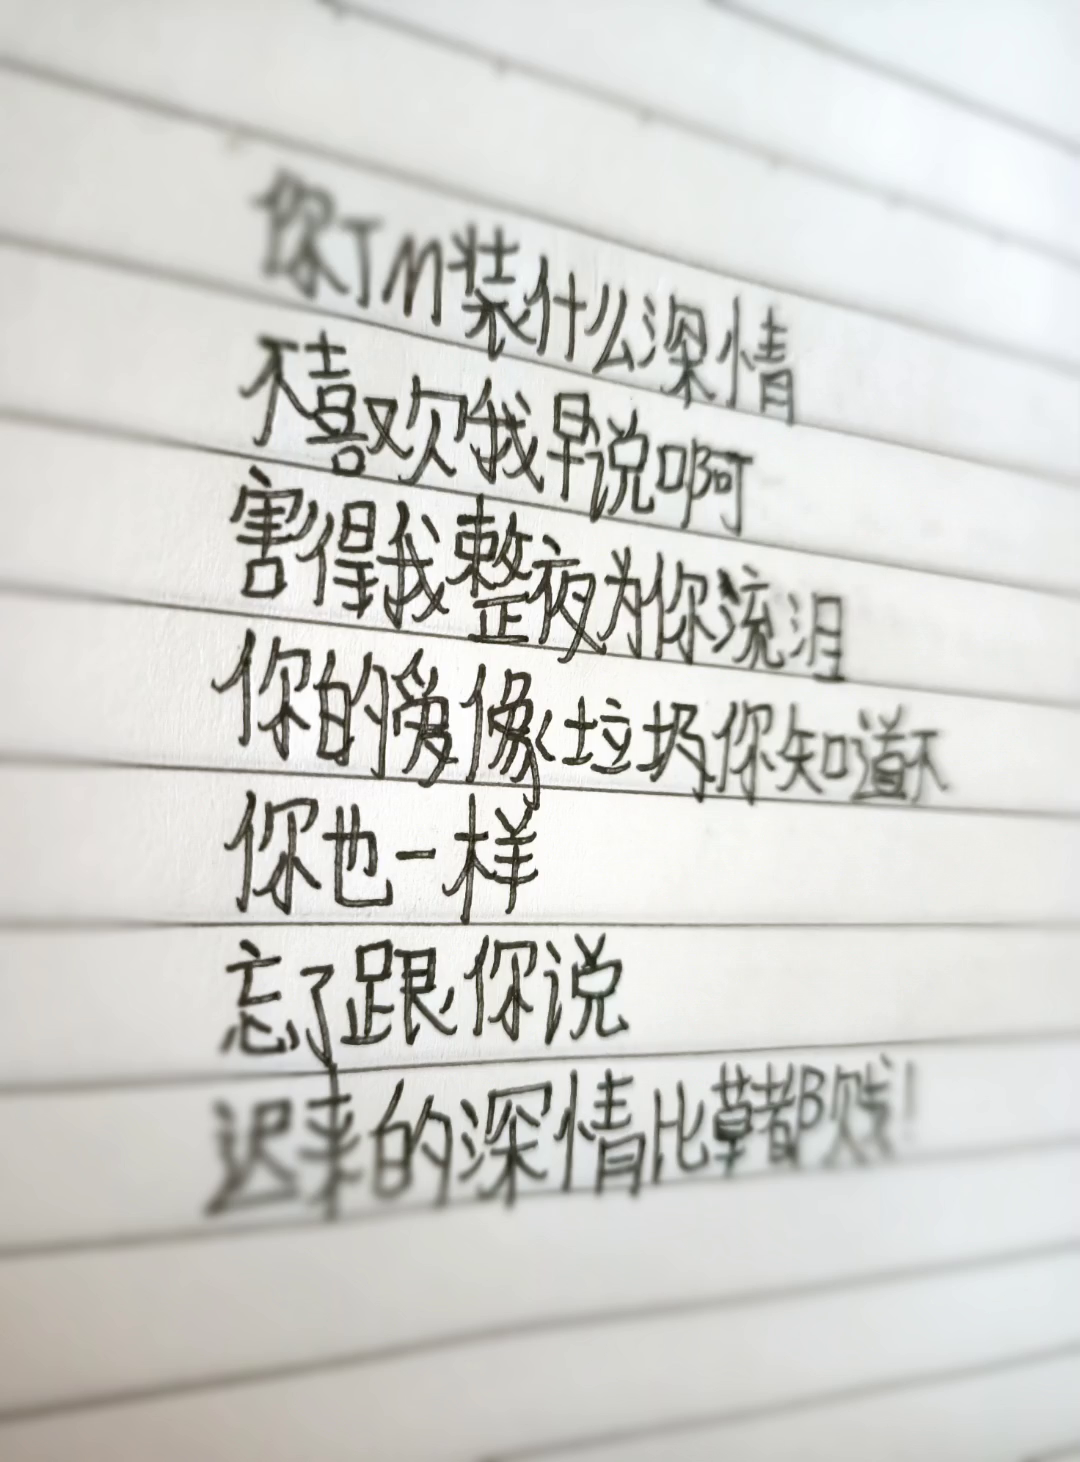 你TM装什么深情
不喜欢我早说啊
害得我整夜为你流泪
你的爱像垃圾你知道不
你也一样
忘了跟你说
迟来的深情比草都贱!